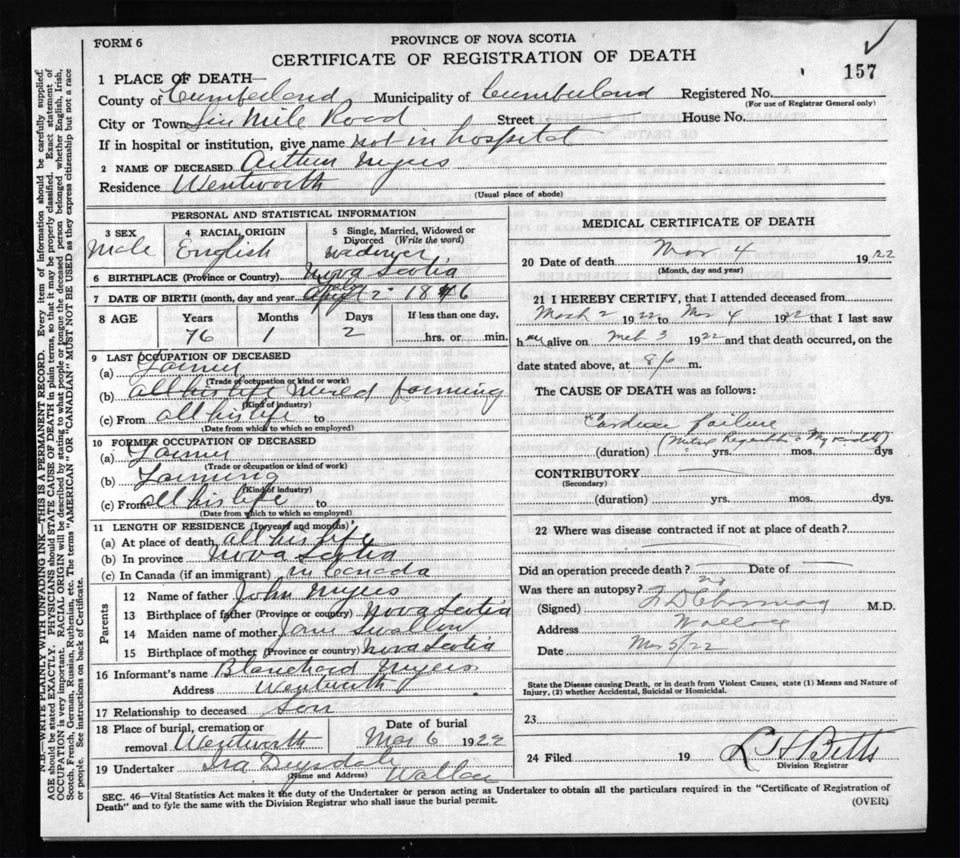 FORM 6
PROVINCE OF NOVA SCOTIA
CERTIFICATE OF REGISTRATION OF DEATH
157
1 PLACE OF DEATH—
County of Cumberland Municipality of Cumberland Registered No.
(For use of Registrar General only)
City or Town Six Mile Road Street House No.
If in hospital or institution, give name not in hospital
2 NAME OF DECEASED Arthur Myers
Residence Wentworth
(Usual place of abode)
PERSONAL AND STATISTICAL INFORMATION
3 SEX 4 RACIAL ORIGIN 5 Single, Married, Widowed or Divorced (Write the word)
Male English widower
6 BIRTHPLACE (Province or Country) Nova Scotia
7 DATE OF BIRTH (month, day and year 2 1846
8 AGE Years Months Days If less than one day,
76 1 2 hrs. or min.
9 LAST OCCUPATION OF DECEASED
(a) Farmer
(Trade or occupation or kind of work)
(b) all his life farming
(Kind of industry)
(c) From all his life to
(Date from which to which so employed)
10 FORMER OCCUPATION OF DECEASED
(a) Farmer
(Trade or occupation or kind of work)
(b) Farming
(Kind of industry)
(c) From all his life to
(Date from which to which so employed)
11 LENGTH OF RESIDENCE (In years and months)
(a) At place of death all his life
(b) In province Nova Scotia
(c) In Canada (if an immigrant) in Canada
Parents
12 Name of father John Myers
13 Birthplace of father (Province or country) Nova Scotia
14 Maiden name of mother Jane Swallow
15 Birthplace of mother (Province or country) Nova Scotia
16 Informant's name Blanchard Myers
Address Wentworth
17 Relationship to deceased Son
18 Place of burial, cremation or removal Wentworth
Date of burial Mar 6 1922
19 Undertaker Ira Drysdale Wallace
(Name and Address)
MEDICAL CERTIFICATE OF DEATH
20 Date of death Mar 4 1922
(Month, day and year)
21 I HEREBY CERTIFY, that I attended deceased from
March 2 1922 to Mar 4 1922 that I last saw
h alive on Mch 3 1922 and that death occurred, on the
date stated above, at m.
The CAUSE OF DEATH was as follows:
Cardiac failure
(duration) yrs. mos. dys
CONTRIBUTORY
(Secondary)
(duration) yrs. mos. dys.
22 Where was disease contracted if not at place of death?
Did an operation precede death? Date of
Was there an autopsy? no
(Signed) M.D.
Address Wallace
Date Mar 5/22
State the Disease causing Death, or in death from Violent Causes, state (1) Means and Nature of
Injury, (2) whether Accidental, Suicidal or Homicidal.
23
24 Filed 19 L H Betts
Division Registrar
SEC. 46—Vital Statistics Act makes it the duty of the Undertaker or person acting as Undertaker to obtain all the particulars required in the "Certificate of Registration of
Death" and to fyle the same with the Division Registrar who shall issue the burial permit.
(OVER)
N.B.—WRITE PLAINLY WITH UNFADING INK—THIS IS A PERMANENT RECORD. Every item of information should be carefully supplied.
AGE should be stated EXACTLY. PHYSICIANS should STATE CAUSE OF DEATH in plain terms, so that it may be properly classified. Exact statement of
OCCUPATION is very important. RACIAL ORIGIN will be described by stating to what people or tongue the deceased person belonged whether English, Irish,
Scotch, French, German, Russian, Ruthenian, etc. The terms "AMERICAN" OR "CANADIAN" MUST NOT BE USED as they express citizenship but not a race
or people. See instructions on back of Certificate.